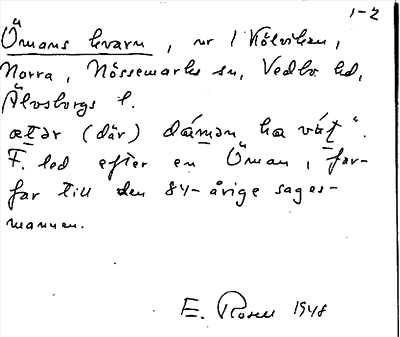 1-2
Ömans kvarn, nr 1 Kölviken,
Norra, Nössemarks sn, Vedbo hd,
Älvsborgs l.
ætər (där) dámən ha vát".
F. led efter en Öman, far-
far till den 84-årige sages-
mannen.
E. Rosell 1948